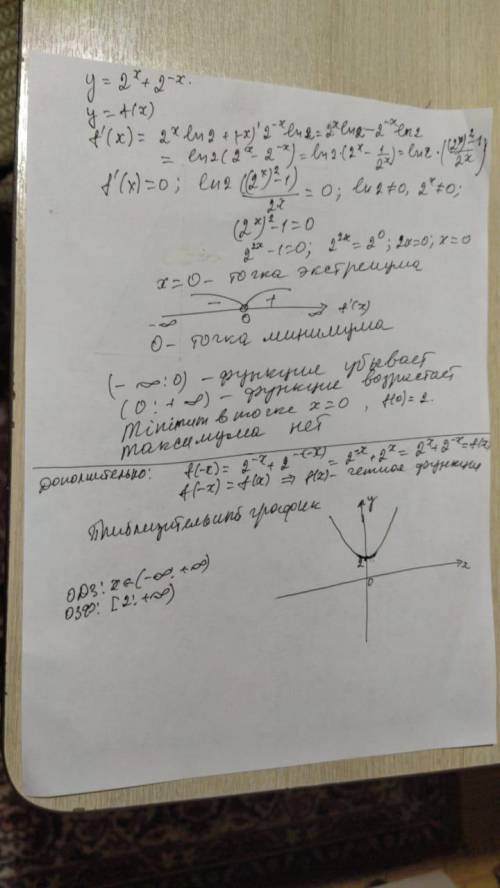 y = 2^x + 2^-x.
y = f(x)
f'(x) = 2^x ln2 + (-x)' 2^-x ln2 = 2^x ln2 - 2^-x ln2
= ln2 (2^x - 2^-x) = ln2 · (2^x - 1/2^x) = ln2 · ((2^x)^2 - 1)/2^x)
f'(x) = 0; ln2 ((2^x)^2 - 1)/2^x = 0; ln2 ≠ 0, 2^x ≠ 0;
(2^x)^2 - 1 = 0
2^2x - 1 = 0; 2^2x = 2^0; 2x = 0; x = 0
x = 0 - точка экстремума
- + f'(x)
-∞ 0 ∞
0 - точка минимума
(-∞; 0) - функция убывает
(0; +∞) - функция возрастает
Minimum в точке x = 0, f(0) = 2.
максимума нет
Дополнительно: f(-x) = 2^-x + 2^-(-x) = 2^-x + 2^x = 2^x + 2^-x = f(x)
f(-x) = f(x) ⇒ f(x) - четная функция
Приблизительный график
ОДЗ: x ∈ (-∞; +∞)
ОЗФ: [2; +∞)
y
2
0
x